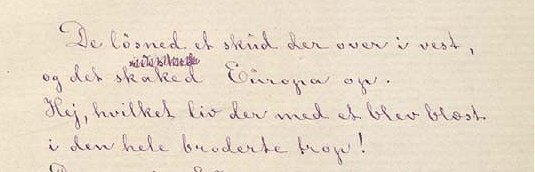 De lösned et skud der over i vest,
og det skaked Europa op.
Hej, hvilket liv der med et blev blæst
i den hele broderte trop!